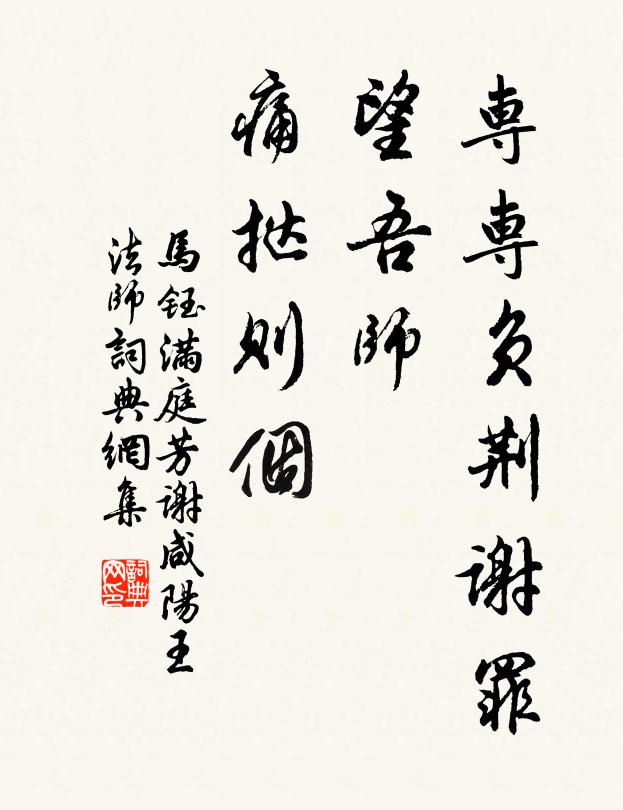 専専負荆謝罪
望吾師
痛挞則個
馬鈺滿庭芳謝咸陽王
法師詞典網集
詞典网印